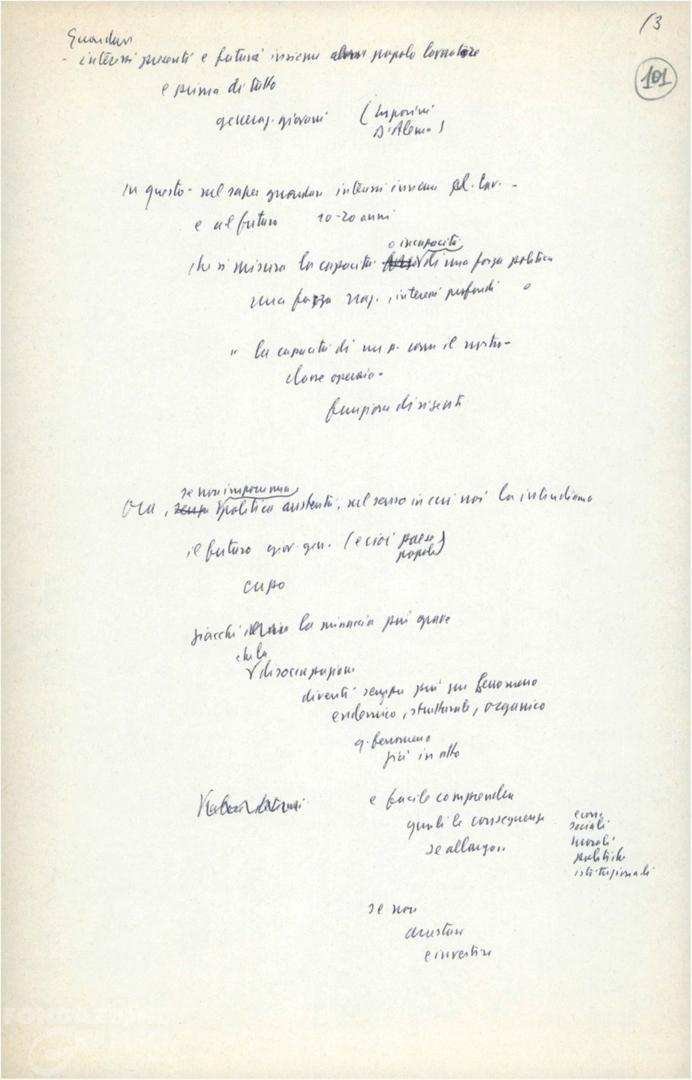 13
101
Guardare
- interessi presenti e futuri insieme popolo lavoratore
e prima di tutto
generaz. giovani (Luporini
D'Alema)
In questo - nel saper guardare interessi insieme pl. lav. -
e al futuro 10-20 anni
o incapacità
che si misura la capacità di una forza politica
una forza naz., interessi profondi
" la capacità di un p. come il nostro -
classe operaia -
funzione dirigente
se non imporremo
Ora, politica austerità, nel senso in cui noi la intendiamo
il futuro giov. gen. (e cioè paese
popolo)
cupo
giacchè la minaccia più grave
che la
disoccupazione
diventi sempre più un fenomeno
endemico, strutturale, organico
q. fenomeno
già in atto
e facile comprendere
quali le conseguenze
se allargasse
econ.
sociali
morali
politiche
istituzionali
se non
arrestare
e invertire